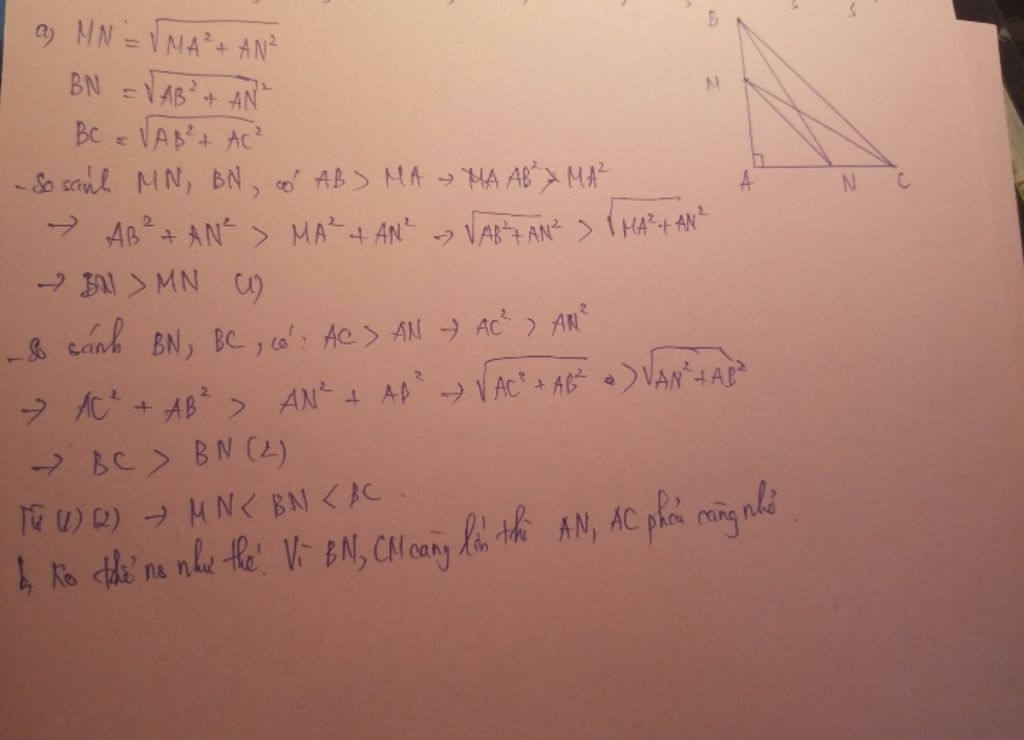 a, MN = √MA² + AN²
BN = √AB² + AN²
BC = √AB² + AC²
- So sánh MN, BN, có AB > MA → AB² > MA²
→ AB² + AN² > MA² + AN² → √AB² + AN² > √MA² + AN²
→ BN > MN (1)
- So sánh BN, BC, có: AC > AN → AC² > AN²
→ AC² + AB² > AN² + AB² → √AC² + AB² > √AN² + AB²
→ BC > BN (2)
Từ (1) (2) → MN < BN < BC.
b, Ko thể như thế. Vì BN, CM càng lớn thì AN, AC phải càng nhỏ.
B
M
A
N
C